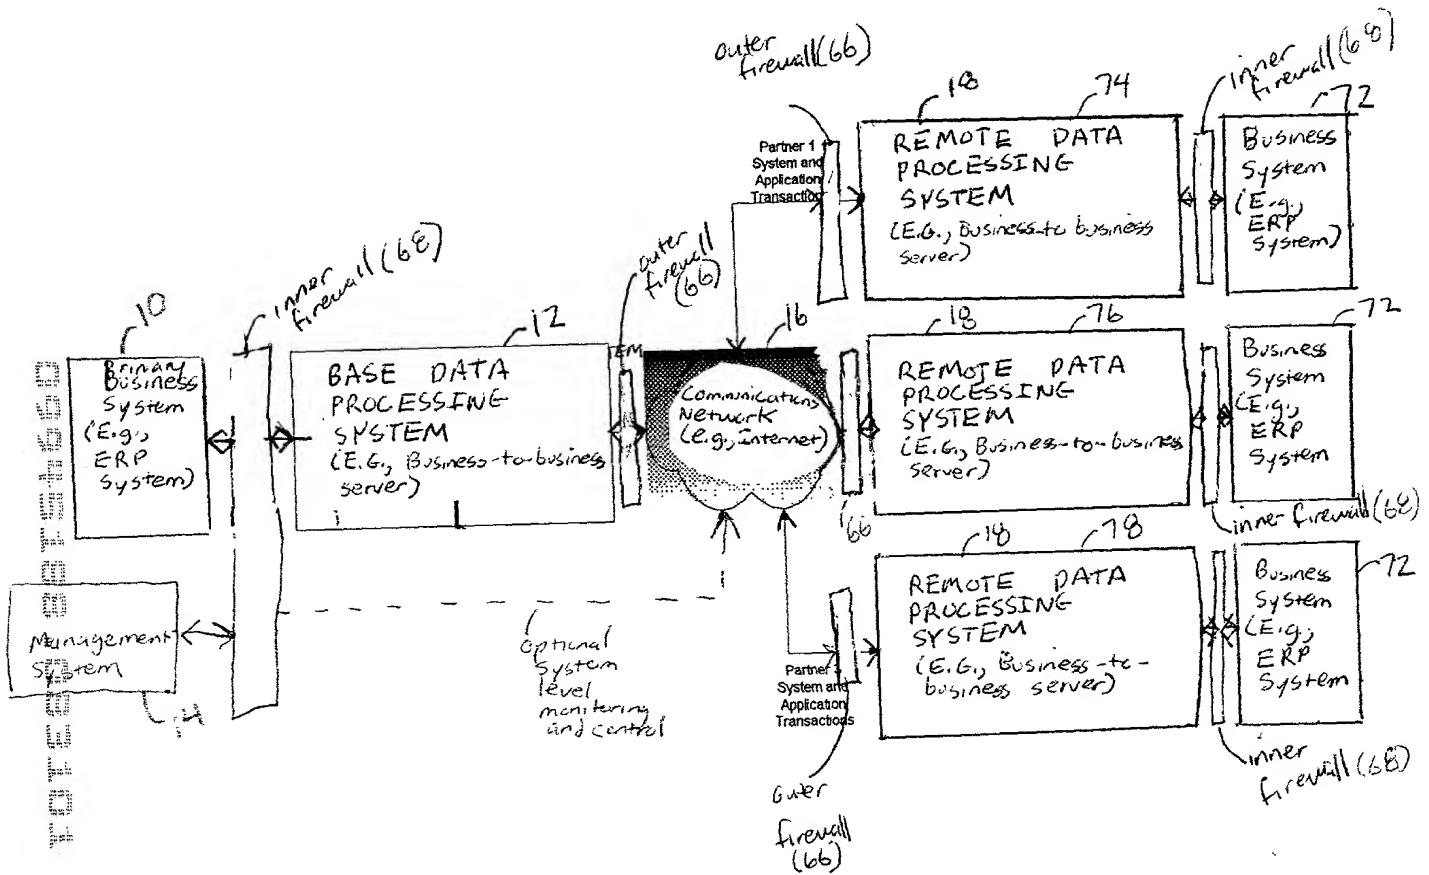 outer
firewall(66)
18
74
inner
firewall(68)
72
Partner 1
System and
Application
Transaction
REMOTE DATA
PROCESSING
SYSTEM
(E.G., Business-to business
server)
Business
System
(E.g.,
ERP
System)
inner
firewall(68)
outer
firewall
(66)
10
12
16
18
76
72
Primary
Business
System
(E.g.,
ERP
System)
BASE DATA
PROCESSING
SYSTEM
(E.G., Business-to-business
server)
EM
Communications
Network
(e.g., Internet)
REMOTE DATA
PROCESSING
SYSTEM
(E.G., Business-to-business
server)
Business
System
(E.g.,
ERP
System
66
inner firewall(68)
18
78
72
Management
System
14
optional
System
level
monitoring
and control
Partner
System and
Application
Transactions
REMOTE DATA
PROCESSING
SYSTEM
(E.G., Business-to-
business server)
Business
System
(E.g.,
ERP
System
outer
firewall
(66)
inner
firewall(68)